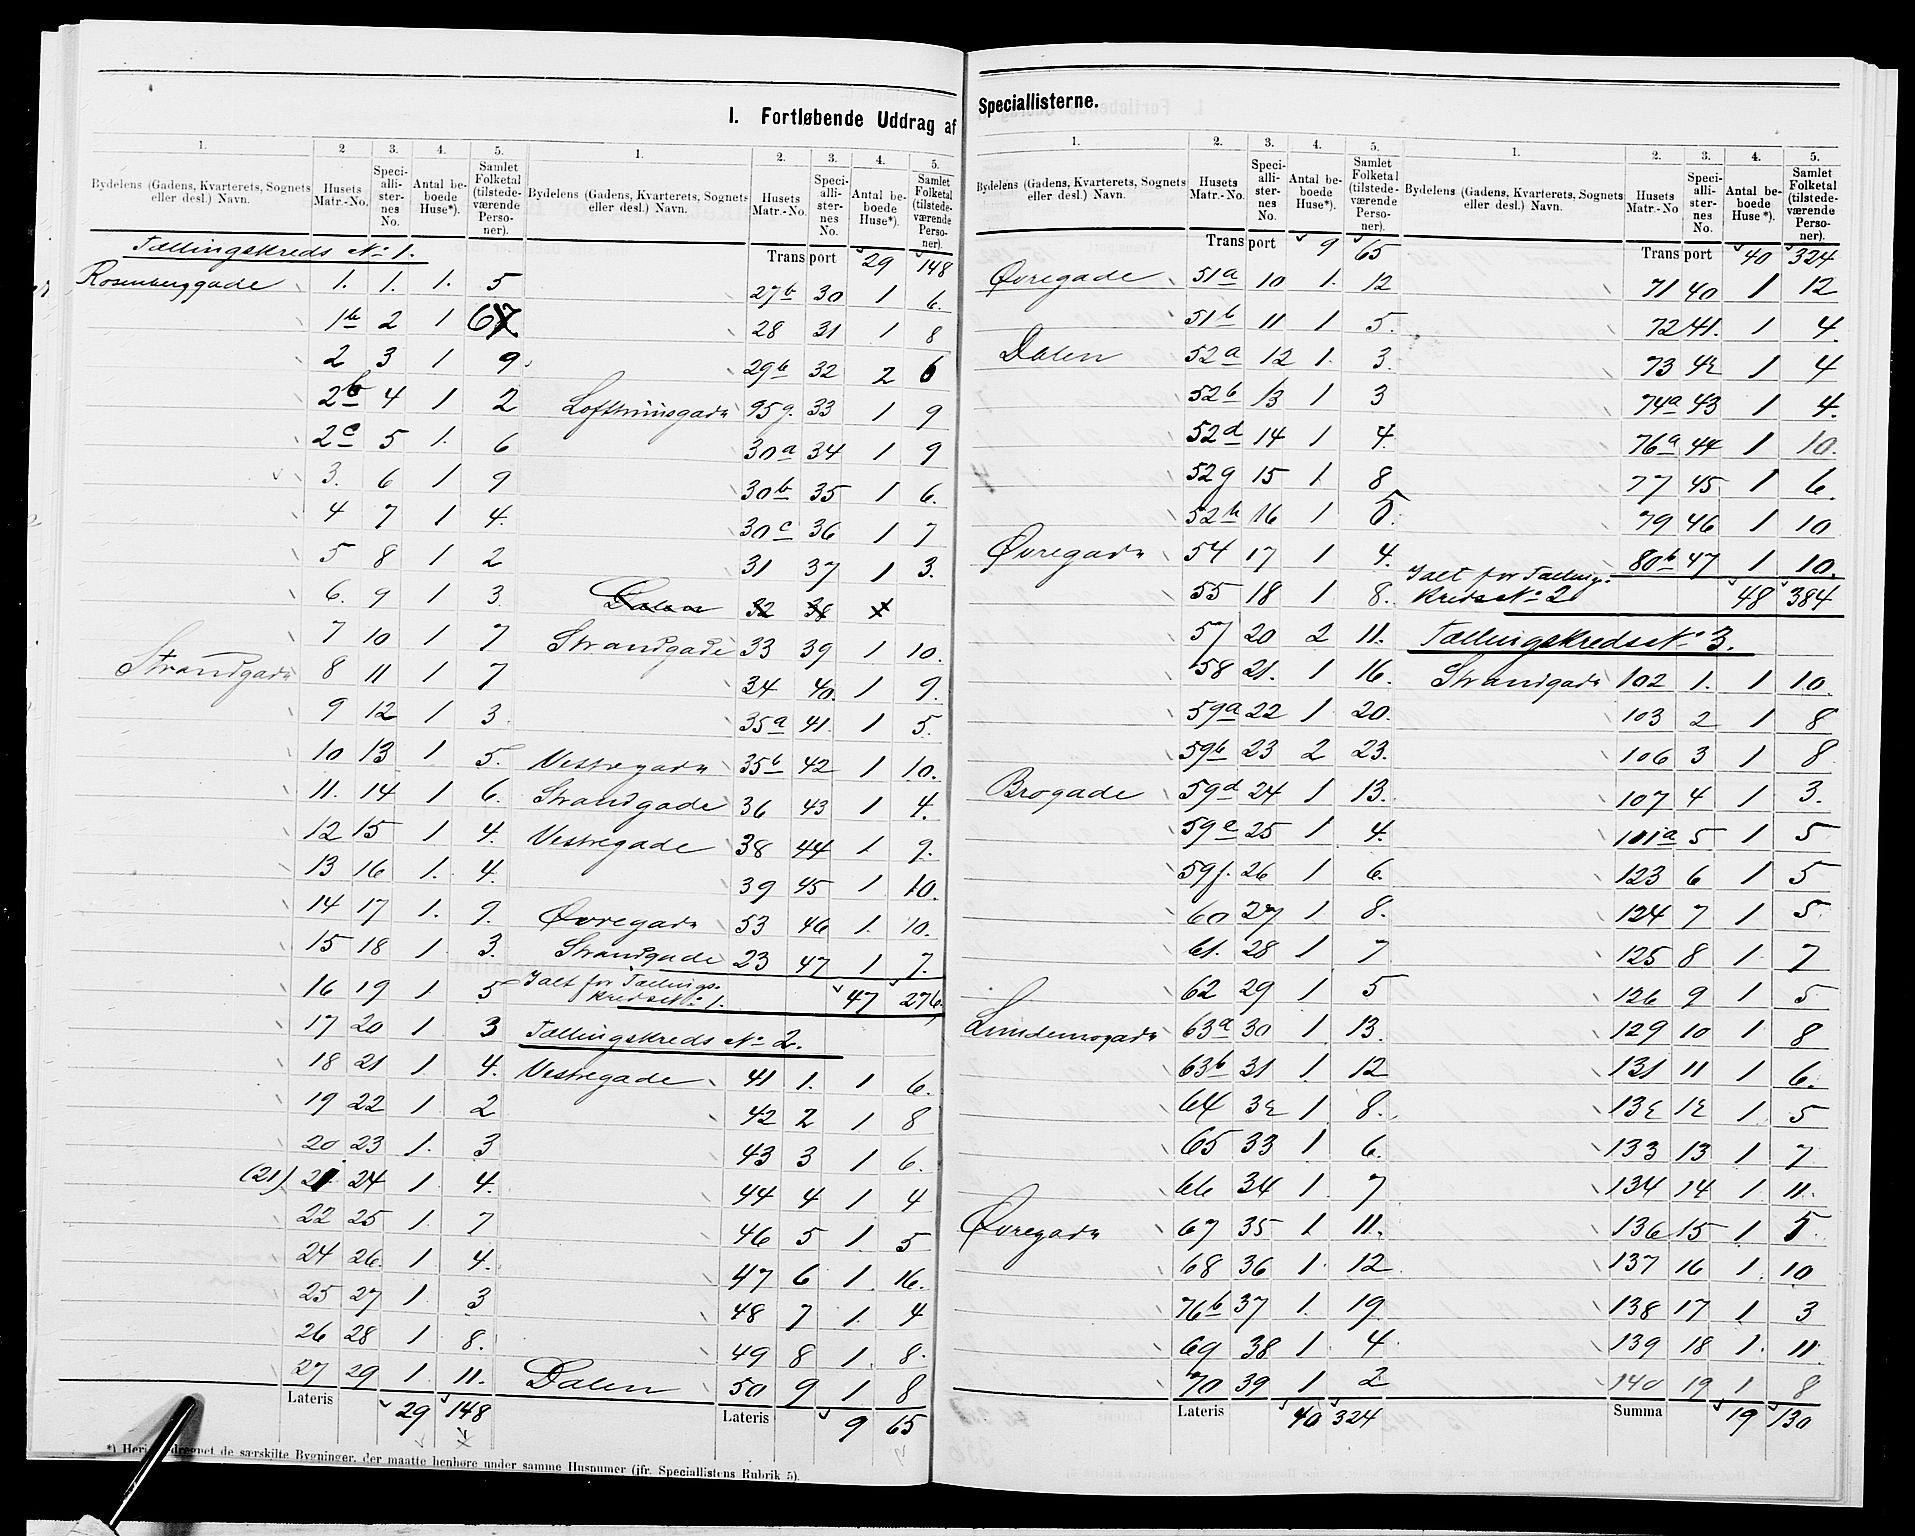 I. Fortløbende Uddrag af Speciallisterne.
1. 2 3. 4. 5.
Bydelens (Gadens, Kvarterets, Sognets eller desl.) Navn. Husets Matr.-No. Speciallisternes No. Antal beboede Huse*). Samlet Folketal (tilstedeværende Personer).
Tællingskreds No 1.
Rosenberggade 1. 1. 1. 5
1b 2 1
2 3 1 9
2b 4 1 2
2c 5 1. 6
3. 6 1 9
4 7 1 4.
5 8 1 2
6. 9 1 3
7 10 1 7
Strandgade 8 11 1 7
9 12 1 3
10 13 1 5.
11. 14 1 6.
12 15 1 4.
13 16 1. 4.
14 17 1. 9.
15 18 1 3.
16 19 1 5
17 20 1 3
18 21 1 4.
19 22 1 2
20 23 1. 3
(21) 21 24 1 4.
22 25 1. 7
24 26. 1 4.
25 27 1. 3
26 28 1 8.
27 29 1 11.
Lateris 29 148
1. 2. 3. 4. 5.
Bydelens (Gadens, Kvarterets, Sognets eller desl.) Navn. Husets Matr.-No. Speciallisternes No. Antal beboede Huse*). Samlet Folketal (tilstedeværende Personer).
Transport 29 148
27b 30 1 6.
28 31 1 8
29b 32 2 6
95g. 33 1 9
30a 34 1 9
30b 35 1 6.
30c 36 1 7
31 37 1 3.
Dalen 32 38 1
Strandgade 33 39 1 10.
34 40. 1 9.
35a 41. 1 5.
Vestregade 35b 42 1 10.
Strandgade 36 43 1 4.
Vestregade 38 44 1. 9.
39 45 1 10.
Øvregade 53 46 1. 10.
Strandgade 23 47 1 7.
Ialt for Tællings-
kreds No 1. 47 276
Tællingskreds No 2.
Vestregade 41 1. 1 6.
42 2 1 8
43 3 1 6.
44 4 1 4
46 5 1. 5
47 6 1. 16.
48 7 1. 4
49 8 1. 8.
Dalen 50 9 1 8
Lateris 9 65
*) Heri de særskilte Bygninger, der maatte henhøre under samme Husnumer (jfr. Speciallistens Rubrik 5).
1. 2. 3. 4. 5.
Bydelens (Gadens, Kvarterets, Sognets eller desl.) Navn. Husets Matr.-No. Speciallisternes No. Antal beboede Huse*). Samlet Folketal (tilstedeværende Personer).
Transport 9 65
Øvregade 51a 10 1. 12
51b 11 1 5.
Dalen 52a 12 1. 3.
52b 13 1 3
52d 14 1 4.
52g 15 1 8
52h 16 1 5.
Øvregade 54 17 1 4.
55 18 1 8.
57 20 2 11.
58 21. 1 16.
59a 22 1 20.
59b 23 2 23.
Brogade 59d 24 1 13.
59e 25 1 4.
59f. 26 1 6.
60 27 1 8.
61. 28 1 7
62 29 1 5
63a 30 1. 13.
63b 31 1. 12
64 32 1 8.
65 33 1. 6.
66 34 1. 7
Øvregade 67 35 1 11.
68 36 1. 12
76b 37 1. 19.
69 38 1. 4
70 39 1 2
Lateris 40 324
1. 2. 3. 4. 5.
Bydelens (Gadens, Kvarterets, Sognets eller desl.) Navn. Husets Matr.-No. Speciallisternes No. Antal beboede Huse*). Samlet Folketal (tilstedeværende Personer).
Transport 40 324
71 40 1 12
72 41. 1 4.
73 42 1 4
74a 43 1 4.
76a 44 1 10.
77 45 1 6.
79 46 1 10
80b 47 1 10.
Ialt for Tællings-
kreds No 2 48 384
Tællingskreds No 3.
Strandgade 102 1. 1 10.
103 2 1 8
106 3 1 8
107 4 1 3.
101a 5 1 5
123 6 1 5
124 7 1 5
125 8 1 7
126 9 1 5
129 10 1 8
131 11 1 6.
132 12 1. 5
133 13 1. 7
134 14 1. 11.
136 15 1. 5
137 16 1. 10
138 17 1 3
139 18 1. 11.
140 19 1 8
Summa 19 130